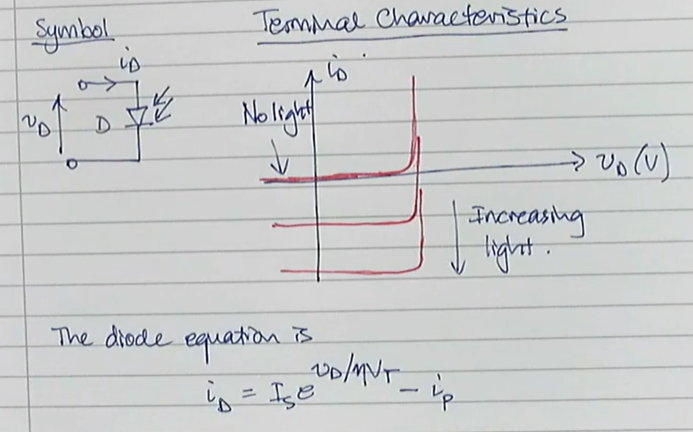 Symbol
Terminal Characteristics
iD
vD
D
iD
No light
vD (V)
Increasing
light.
The diode equation is
iD = Is e^vD/ηVT - ip